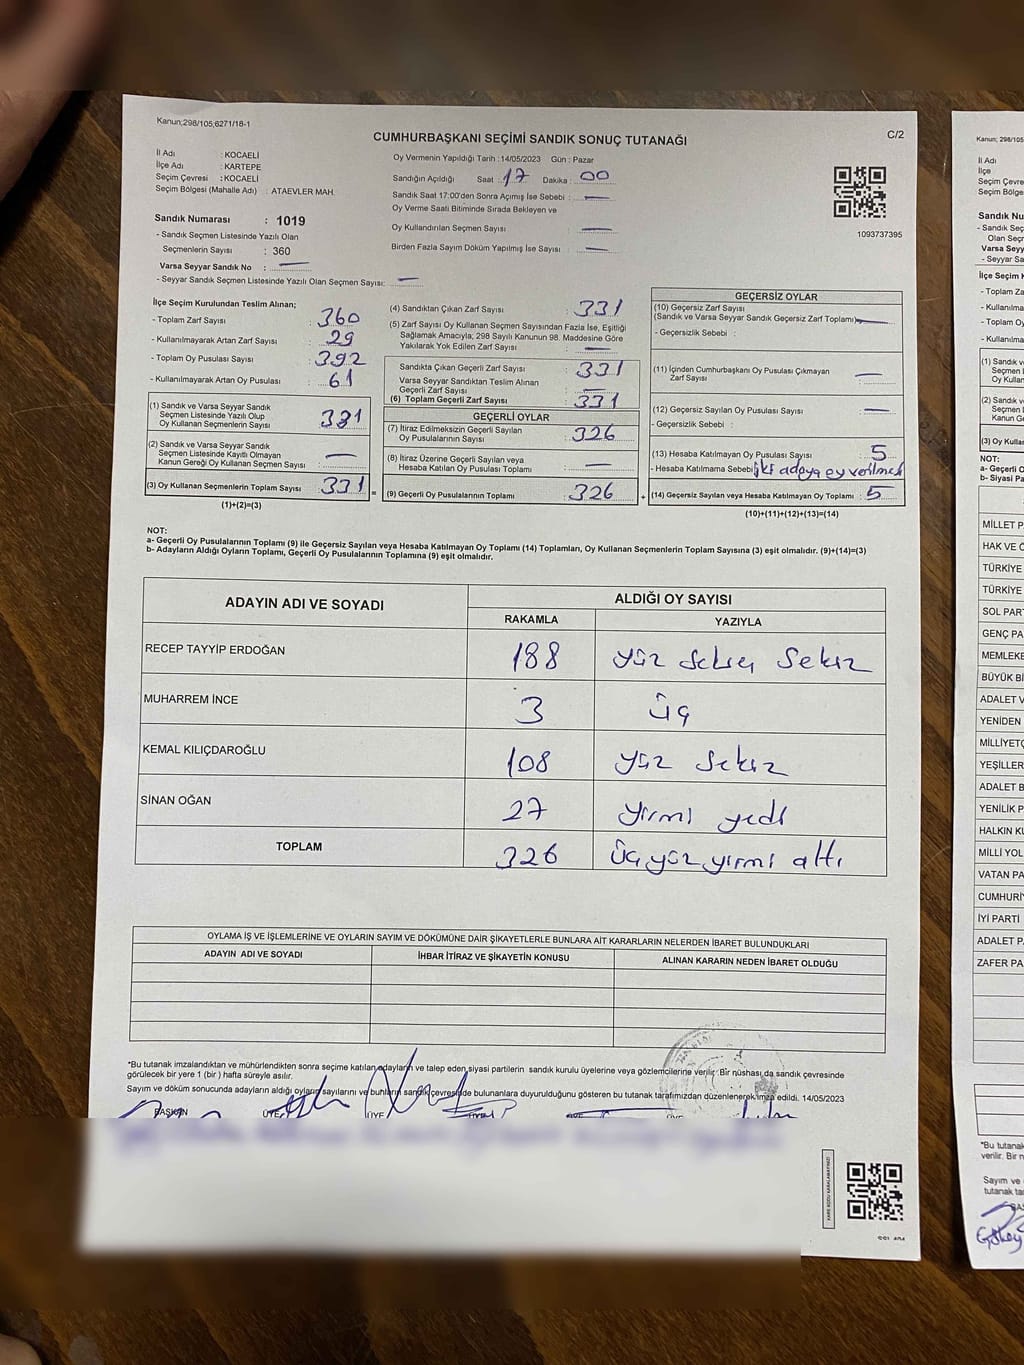 Kanun;298/105;6271/18-1
C/2
CUMHURBAŞKANI SEÇİMİ SANDIK SONUÇ TUTANAĞI
İl Adı : KOCAELİ
İlçe Adı : KARTEPE
Seçim Çevresi : KOCAELİ
Seçim Bölgesi (Mahalle Adı) : ATAEVLER MAH.
Sandık Numarası : 1019
- Sandık Seçmen Listesinde Yazılı Olan
Seçmenlerin Sayısı : 360
Varsa Seyyar Sandık No : —
- Seyyar Sandık Seçmen Listesinde Yazılı Olan Seçmen Sayısı: —
Oy Vermenin Yapıldığı Tarih : 14/05/2023 Gün : Pazar
Sandığın Açıldığı Saat : 17 Dakika : 00
Sandık Saat 17:00'den Sonra Açımış İse Sebebi : —
Oy Verme Saati Bitiminde Sırada Bekleyen ve
Oy Kullandırılan Seçmen Sayısı : —
Birden Fazla Sayım Döküm Yapılmış İse Sayısı : —
1093737395
İlçe Seçim Kurulundan Teslim Alınan;
- Toplam Zarf Sayısı : 360
- Kullanılmayarak Artan Zarf Sayısı : 29
- Toplam Oy Pusulası Sayısı : 392
- Kullanılmayarak Artan Oy Pusulası : 61
(1) Sandık ve Varsa Seyyar Sandık
Seçmen Listesinde Yazılı Olup
Oy Kullanan Seçmenlerin Sayısı : 331
(2) Sandık ve Varsa Seyyar Sandık
Seçmen Listesinde Kayıtlı Olmayan
Kanun Gereği Oy Kullanan Seçmen Sayısı : —
(3) Oy Kullanan Seçmenlerin Toplam Sayısı : 331 =
(1)+(2)=(3)
(4) Sandıktan Çıkan Zarf Sayısı : 331
(5) Zarf Sayısı Oy Kullanan Seçmen Sayısından Fazla İse, Eşitliği
Sağlamak Amacıyla; 298 Sayılı Kanunun 98. Maddesine Göre
Yakılarak Yok Edilen Zarf Sayısı : —
Sandıkta Çıkan Geçerli Zarf Sayısı : 331
Varsa Seyyar Sandıktan Teslim Alınan
Geçerli Zarf Sayısı : —
(6) Toplam Geçerli Zarf Sayısı : 331
GEÇERLİ OYLAR
(7) İtiraz Edilmeksizin Geçerli Sayılan
Oy Pusulalarının Sayısı : 326
(8) İtiraz Üzerine Geçerli Sayılan veya
Hesaba Katılan Oy Pusulası Toplamı : —
(9) Geçerli Oy Pusulalarının Toplamı : 326 +
GEÇERSİZ OYLAR
(10) Geçersiz Zarf Sayısı
(Sandık ve Varsa Seyyar Sandık Geçersiz Zarf Toplamı) : —
- Geçersizlik Sebebi :
(11) İçinden Cumhurbaşkanı Oy Pusulası Çıkmayan
Zarf Sayısı : —
(12) Geçersiz Sayılan Oy Pusulası Sayısı : —
- Geçersizlik Sebebi :
(13) Hesaba Katılmayan Oy Pusulası Sayısı : 5
- Hesaba Katılmama Sebebi : iki adaya oy verilmek
(14) Geçersiz Sayılan veya Hesaba Katılmayan Oy Toplamı : 5
(10)+(11)+(12)+(13)=(14)
NOT:
a- Geçerli Oy Pusulalarının Toplamı (9) ile Geçersiz Sayılan veya Hesaba Katılmayan Oy Toplamı (14) Toplamları, Oy Kullanan Seçmenlerin Toplam Sayısına (3) eşit olmalıdır. (9)+(14)=(3)
b- Adayların Aldığı Oyların Toplamı, Geçerli Oy Pusulalarının Toplamına (9) eşit olmalıdır.
ADAYIN ADI VE SOYADI ALDIĞI OY SAYISI
RAKAMLA YAZIYLA
RECEP TAYYİP ERDOĞAN 188 yüz seksen sekiz
MUHARREM İNCE 3 üç
KEMAL KILIÇDAROĞLU 108 yüz sekiz
SİNAN OĞAN 27 yirmi yedi
TOPLAM 326 üçyüz yirmi altı
OYLAMA İŞ VE İŞLEMLERİNE VE OYLARIN SAYIM VE DÖKÜMÜNE DAİR ŞİKAYETLERLE BUNLARA AİT KARARLARIN NELERDEN İBARET BULUNDUKLARI
ADAYIN ADI VE SOYADI İHBAR İTİRAZ VE ŞİKAYETİN KONUSU ALINAN KARARIN NEDEN İBARET OLDUĞU
*Bu tutanak imzalandıktan ve mühürlendikten sonra seçime katılan adayların ve talep eden siyasi partilerin sandık kurulu üyelerine veya gözlemcilerine verilir. Bir nüshası da sandık çevresinde
görülecek bir yere 1 (bir ) hafta süreyle asılır.
Sayım ve döküm sonucunda adayların aldığı oyların sayılarını ve bunların sandık çevresinde bulunanlara duyurulduğunu gösteren bu tutanak tarafımızdan düzenlenerek imza edildi. 14/05/2023
BAŞKAN ÜYE ÜYE
Kanun; 298/105
İl Adı
İlçe
Seçim Çevre
Seçim Bölges
Sandık Nu
- Sandık Seç
Olan Seç
Varsa Seyy
- Seyyar Sa
İlçe Seçim K
- Toplam Za
- Kullanılma
- Toplam Oy
- Kullanılma
(1) Sandık v
Oy Kullan
(2) Sandık v
Kanun G
(3) Oy Kullan
NOT:
a- Geçerli O
b- Siyasi Pa
MİLLET P
HAK VE Ö
TÜRKİYE
TÜRKİYE
SOL PAR
GENÇ PA
MEMLEKE
BÜYÜK Bİ
ADALET V
YENİDEN
MİLLİYETÇ
YEŞİLLER
ADALET B
YENİLİK P
HALKIN KU
MİLLİ YOL
VATAN PA
CUMHURİY
İYİ PARTİ
ADALET P
ZAFER PA
*Bu tutanak
verilir. Bir n
Sayım ve
tutanak ta